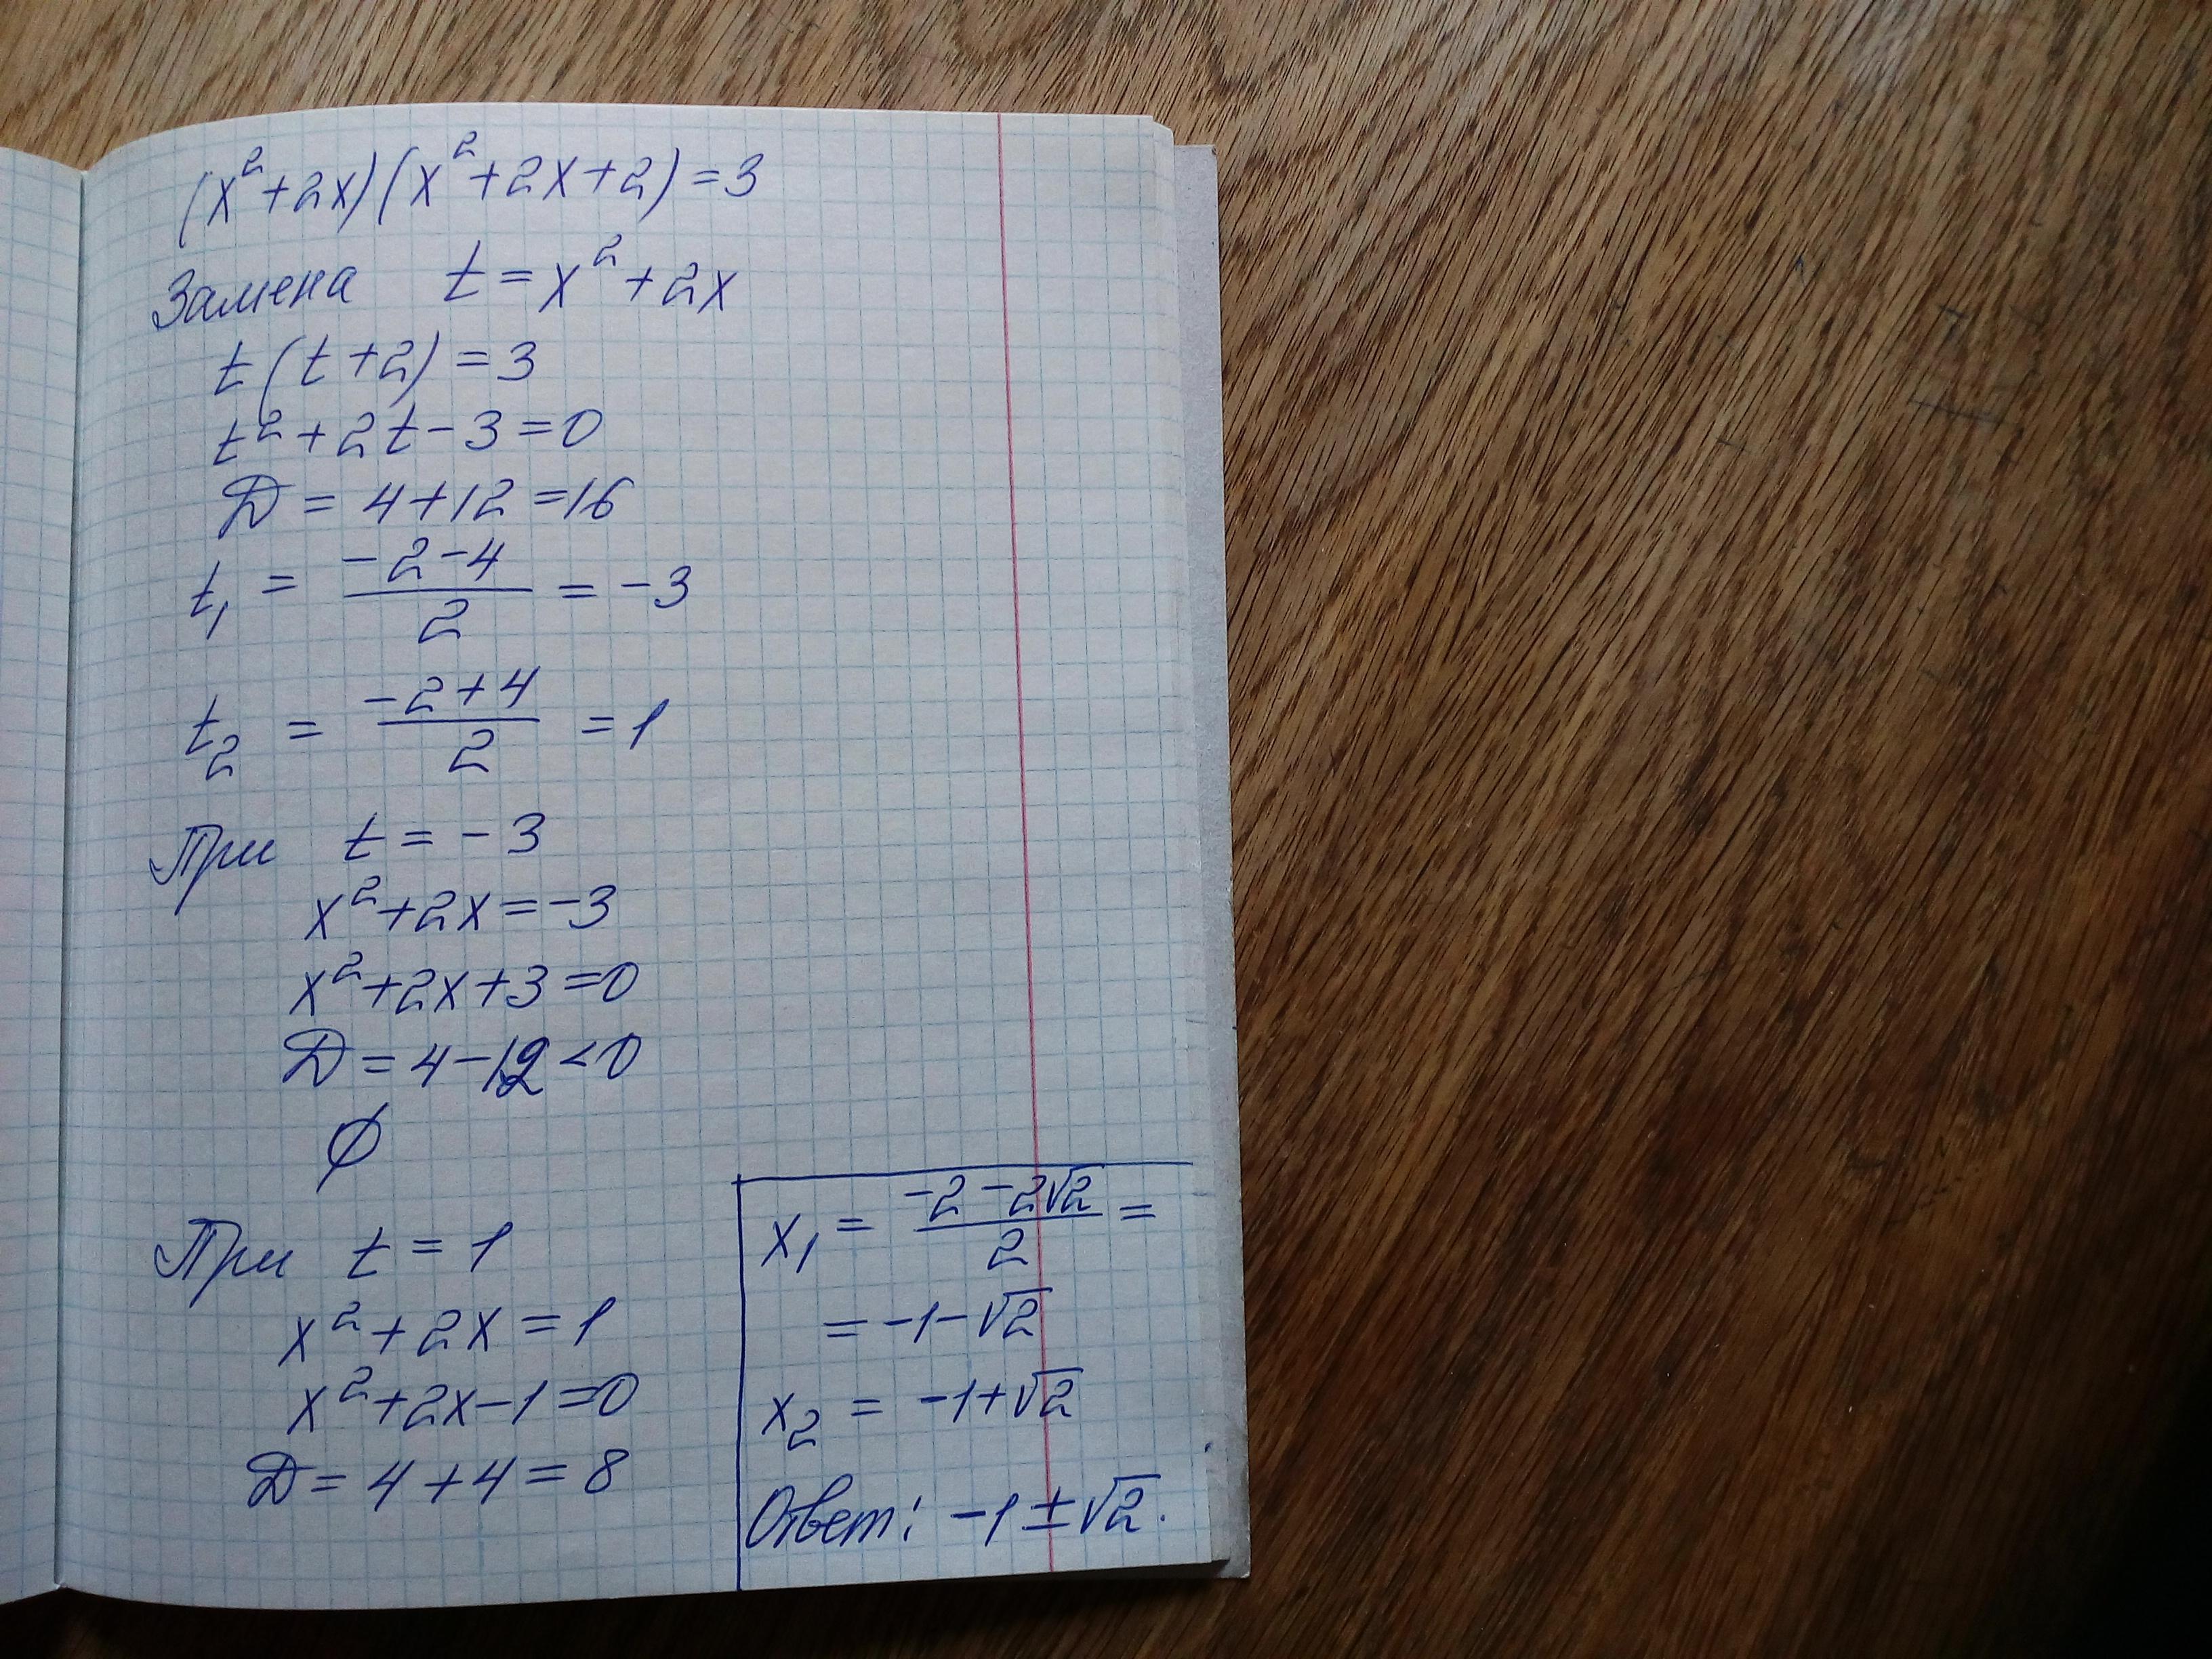 (x²+2x)(x²+2x+2)=3
Замена t=x²+2x
t(t+2)=3
t²+2t-3=0
Д=4+12=16
t₁ = (-2-4)/2 = -3
t₂ = (-2+4)/2 = 1
При t=-3
x²+2x=-3
x²+2x+3=0
Д=4-12<0
∅
При t=1
x²+2x=1
x²+2x-1=0
Д=4+4=8
x₁ = (-2-2√2)/2 =
= -1-√2
x₂ = -1+√2
Ответ: -1±√2.